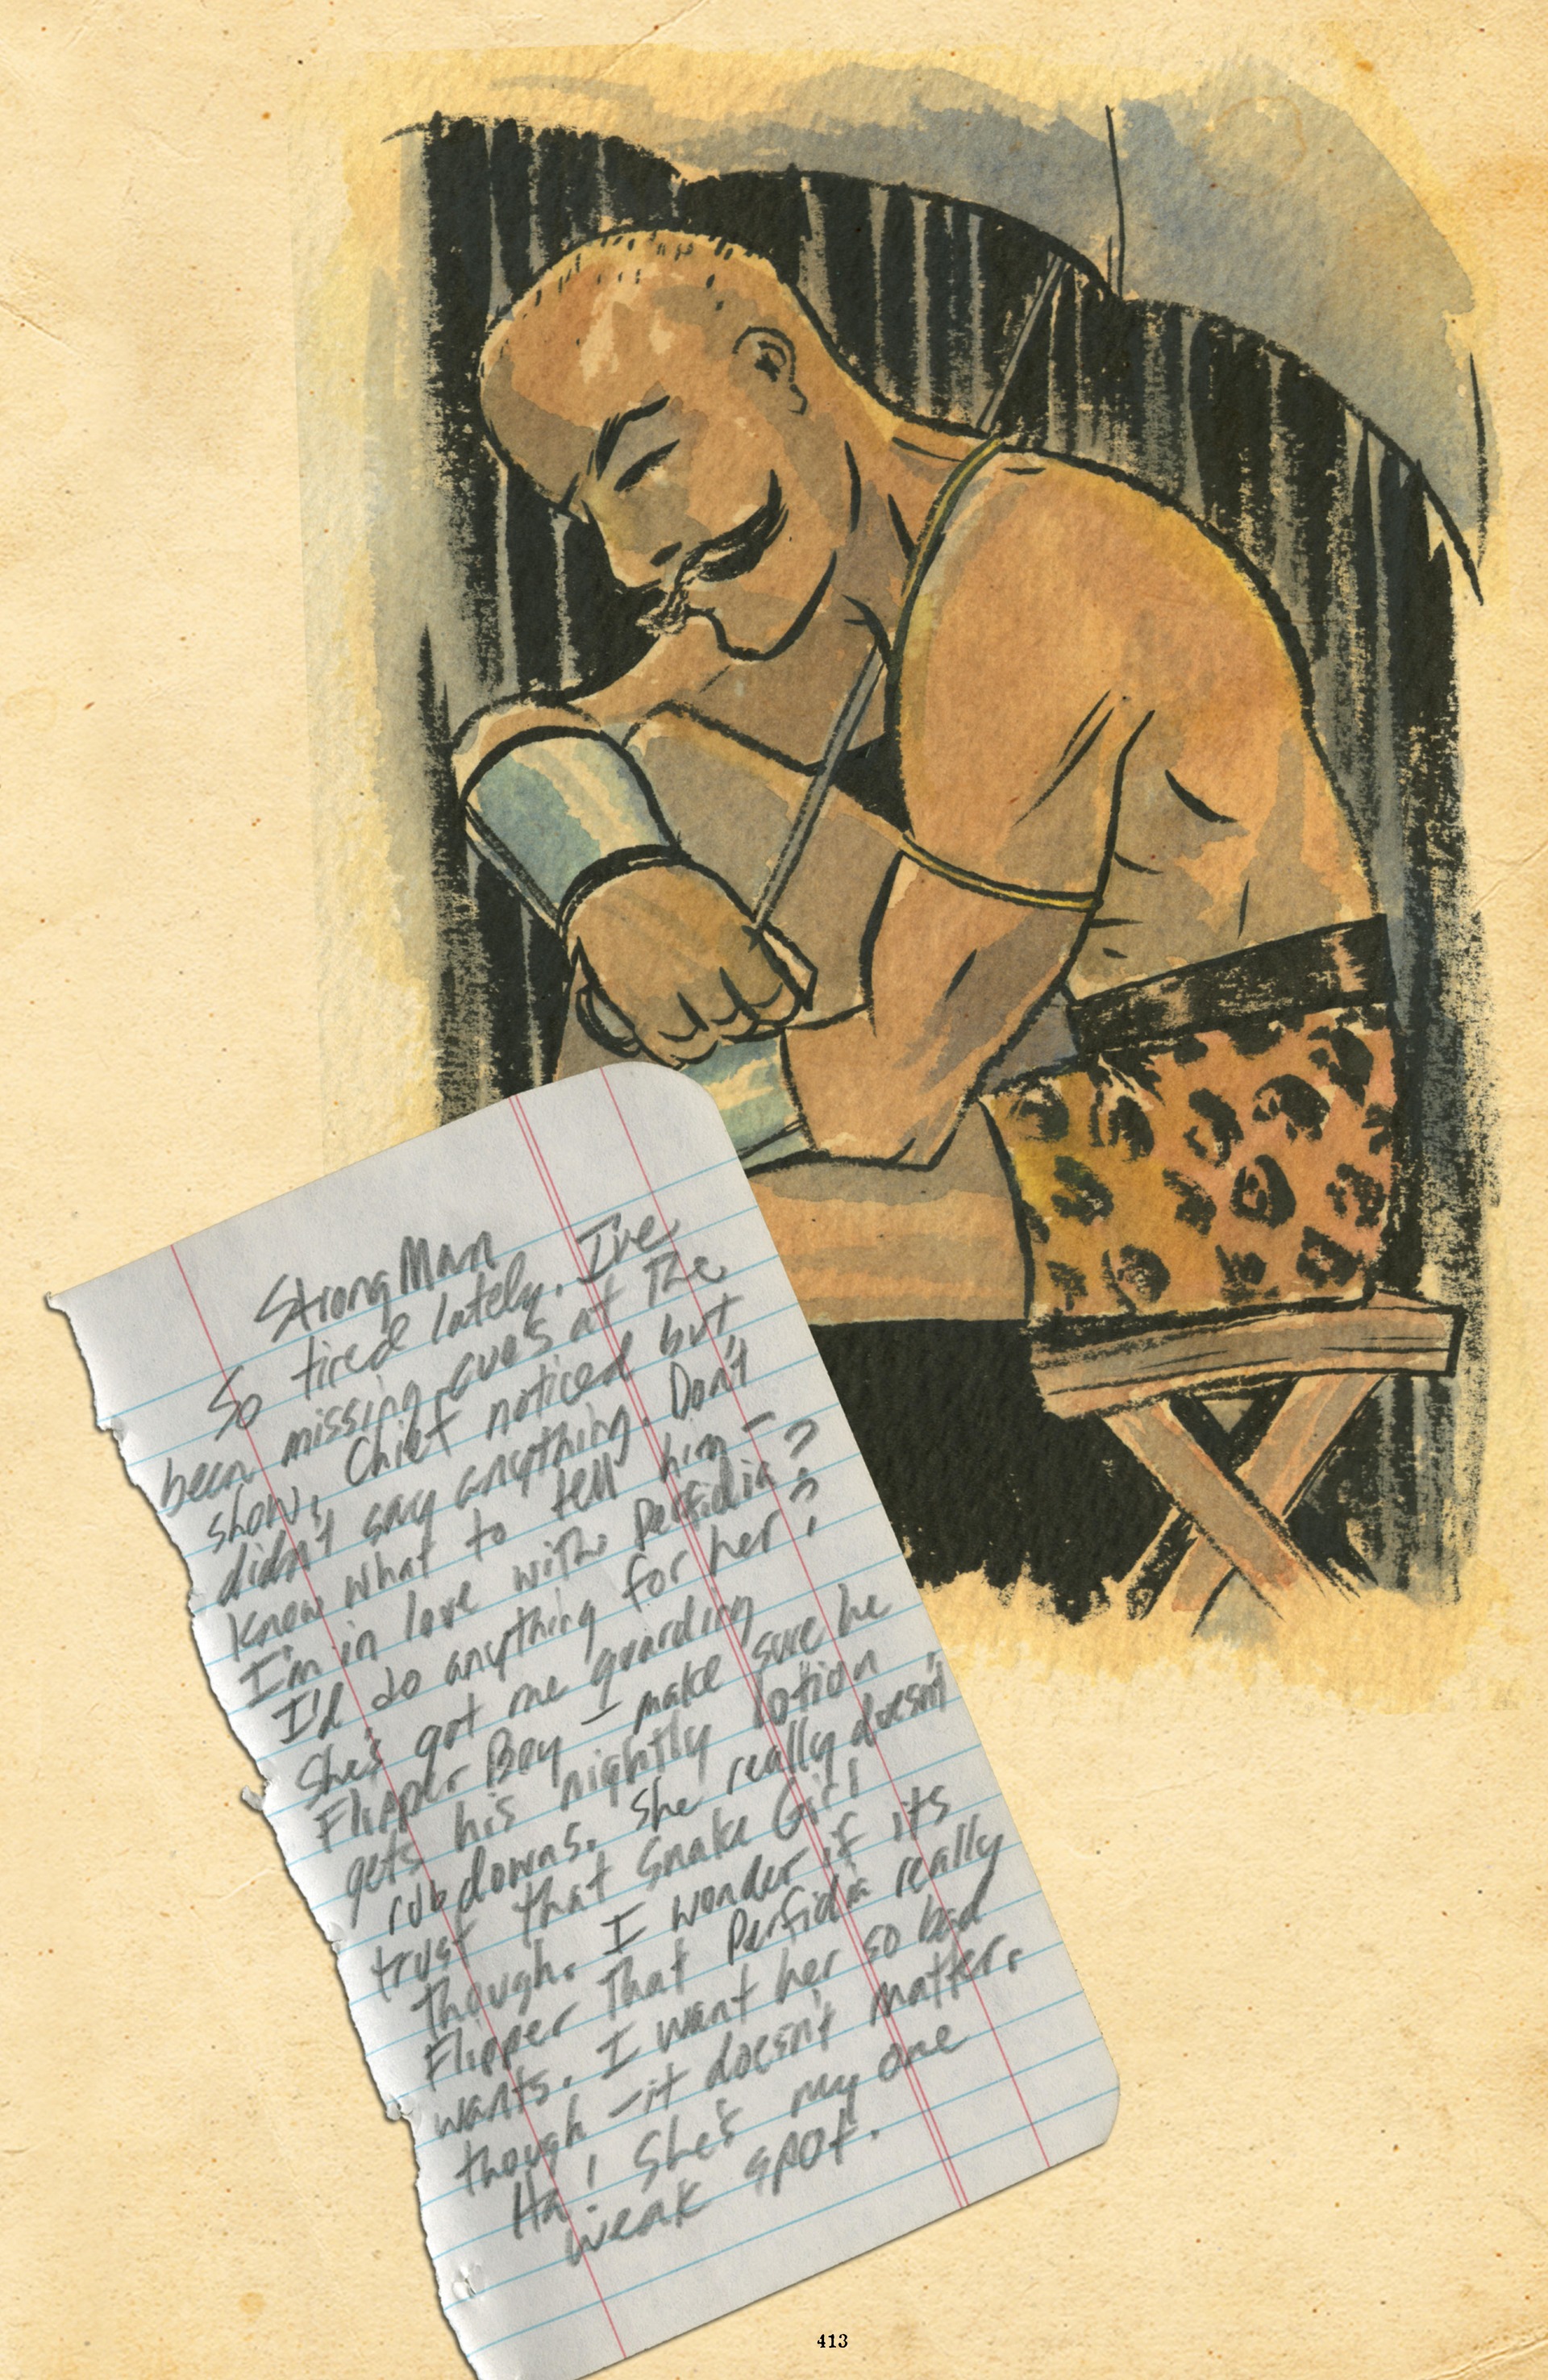 Strong Man
So tired lately. I've
been missing cues at the
show. Chief noticed but
didn't say anything. Don't
know what to tell him –
I'm in love with Perfidia?
I'd do anything for her?
She's got me guarding
Flipper Boy – I make sure he
gets his nightly lotion
rub downs. She really doesn't
trust that Snake Girl
though. I wonder if its
Flipper that Perfidia really
wants. I want her so bad
though – it doesn't matter.
Ha! She's my one
weak spot.
413